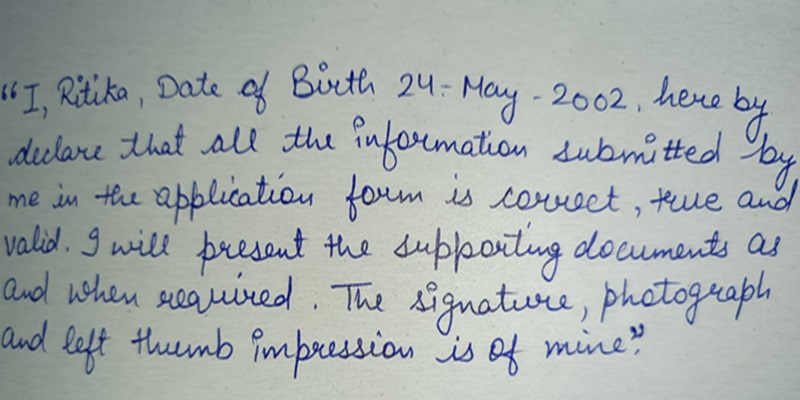 “I, Ritika, Date of Birth 24-May-2002, here by
declare that all the information submitted by
me in the application form is correct, true and
valid. I will present the supporting documents as
and when required. The signature, photograph
and left thumb impression is of mine.”